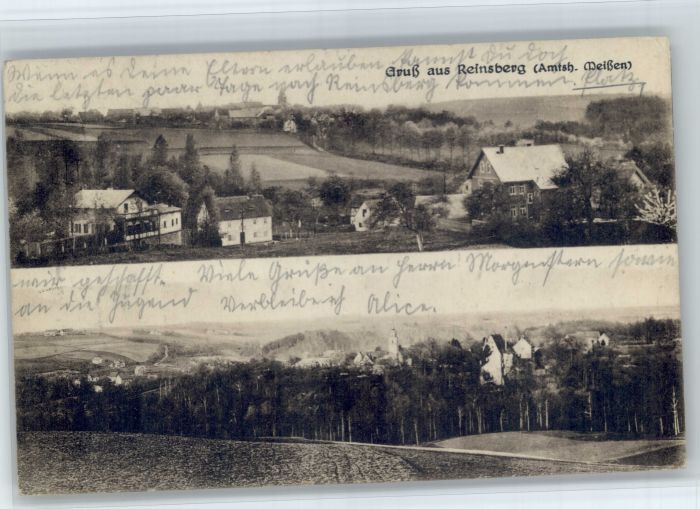 Wenn es Deine Eltern erlauben kannst Du doch
Gruß aus Reinsberg (Amtsh. Meißen)
die letzten paar Tage nach Reinsberg kommen. Platz
wir geschafft. Viele Grüße an Herrn Morgenstern sowie
an die Jugend verbleibe ich Alice.